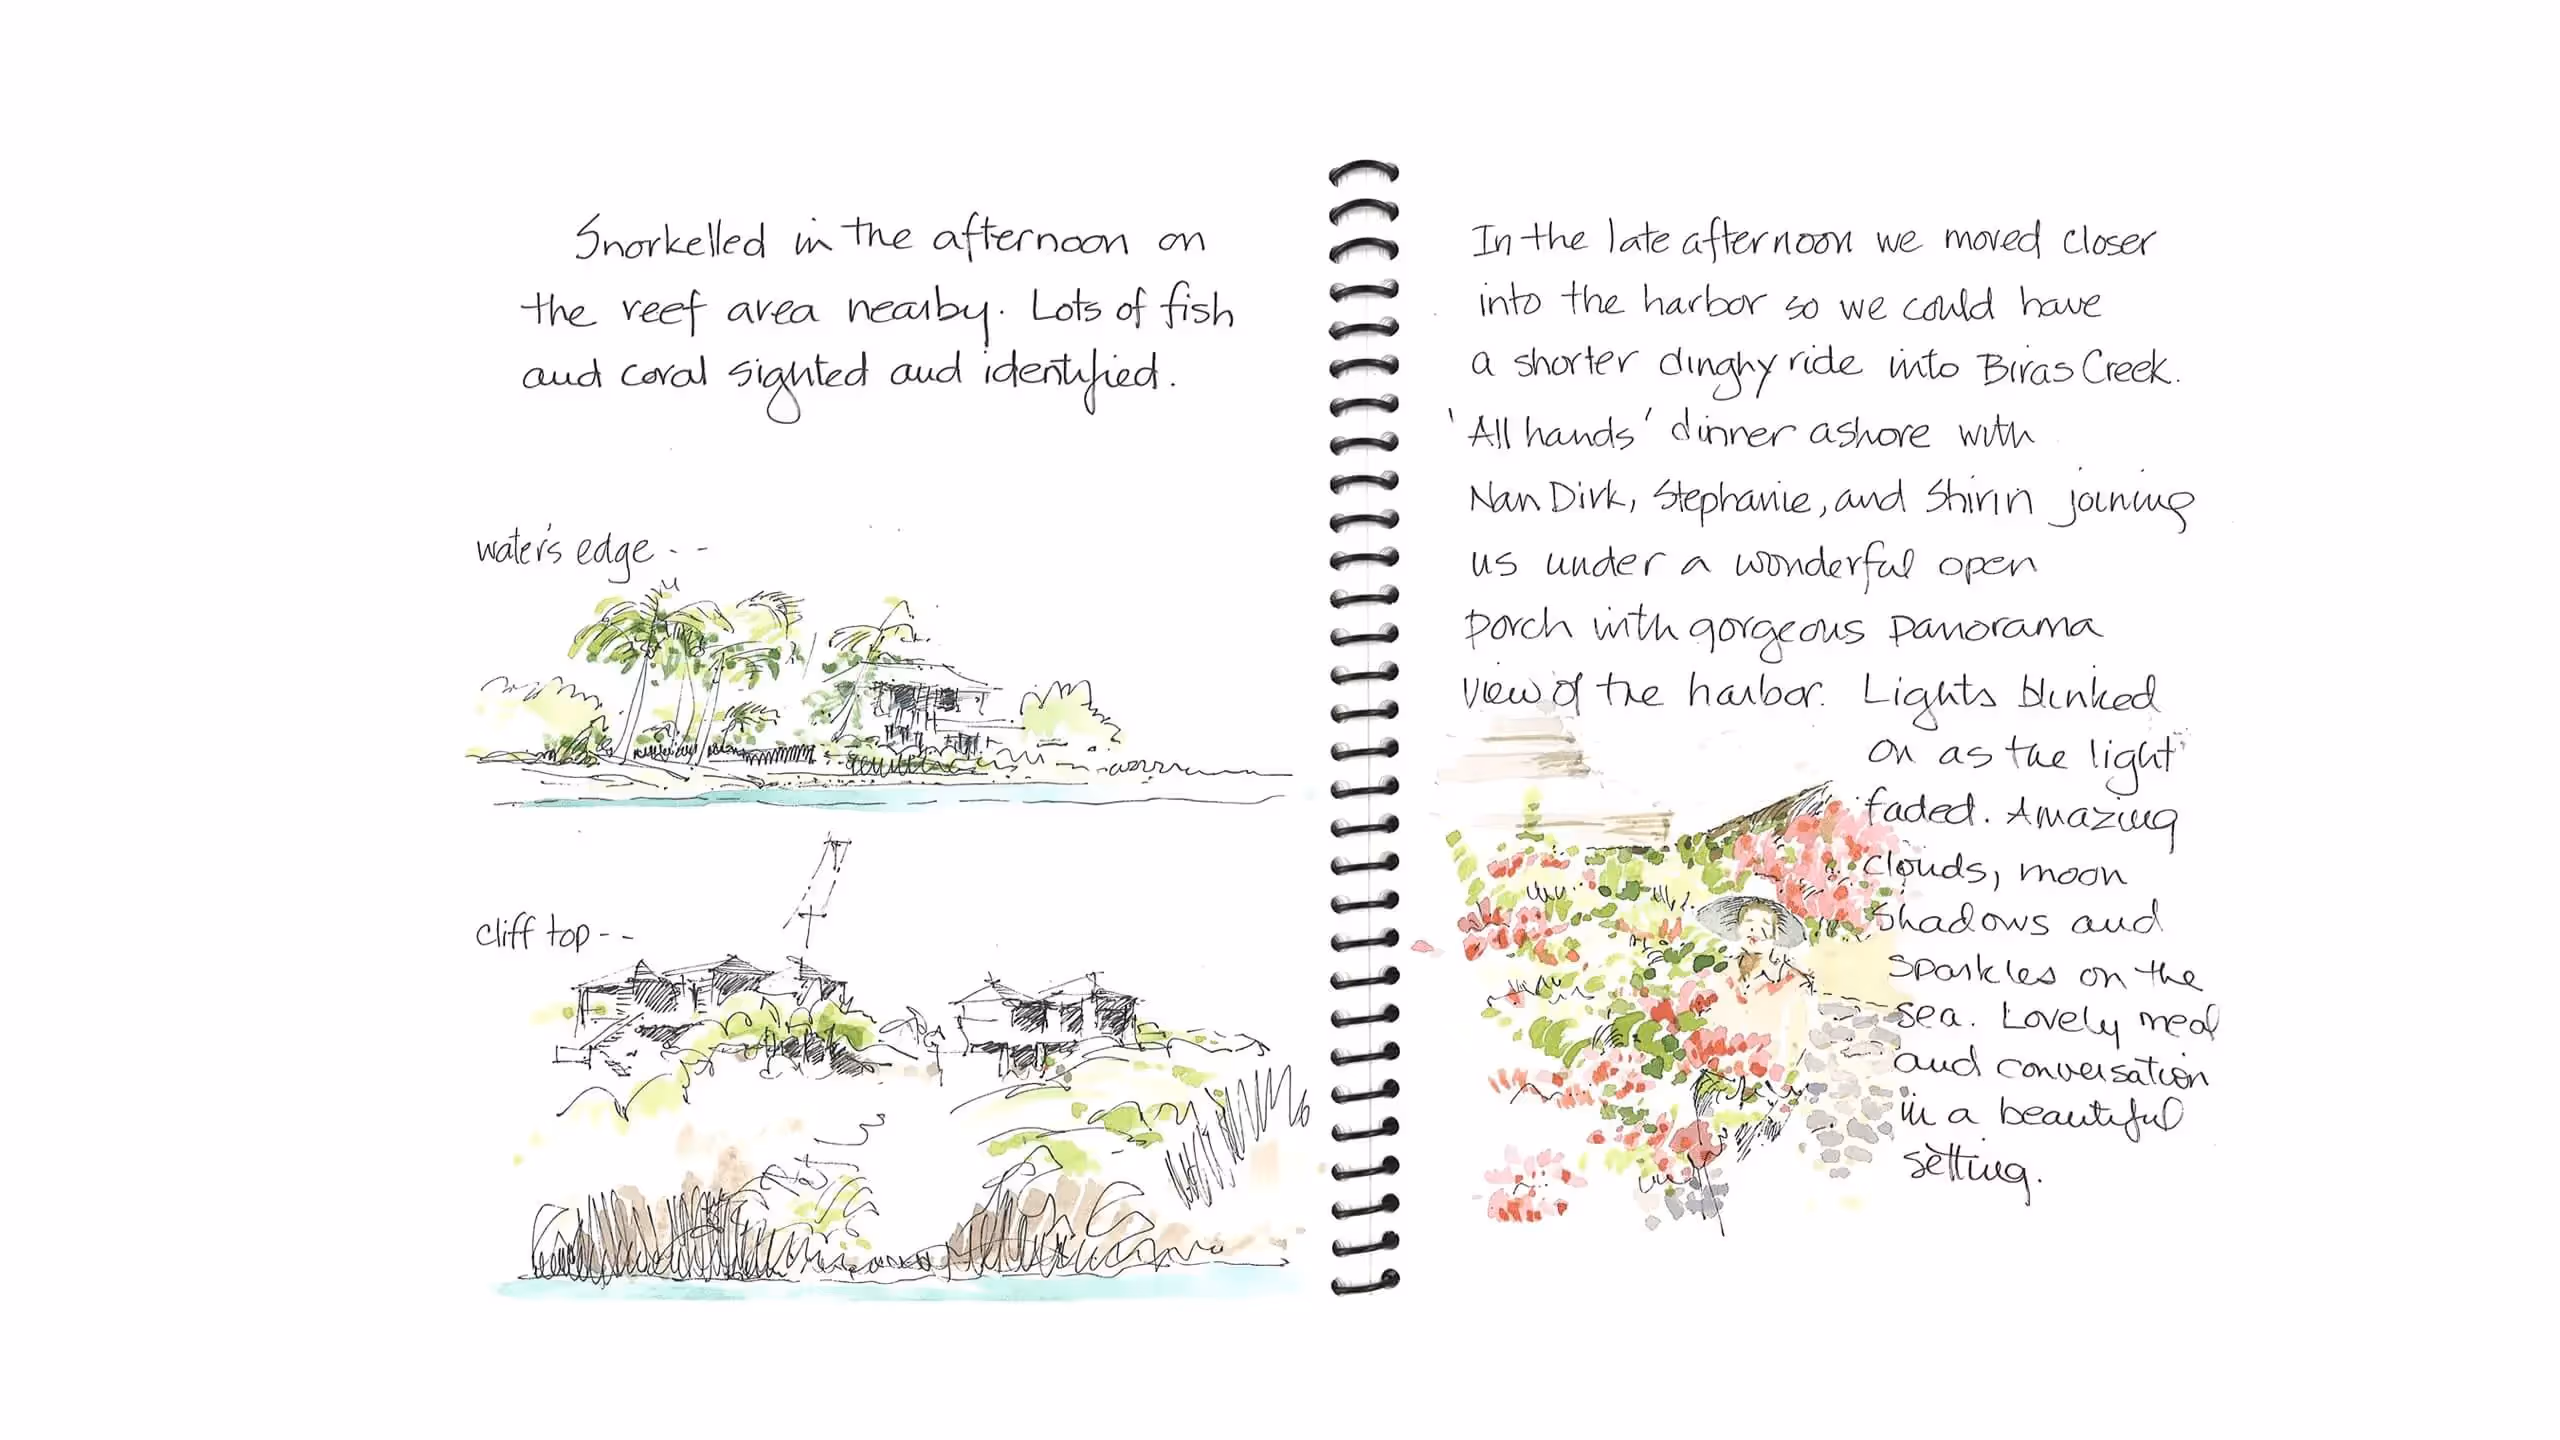 Snorkelled in the afternoon on
the reef area nearby. Lots of fish
and coral sighted and identified.
water's edge - -
cliff top - -
In the late afternoon we moved closer
into the harbor so we could have
a shorter dinghy ride into Biras Creek.
'All hands' dinner ashore with
Nan Dirk, Stephanie, and Shirin joining
us under a wonderful open
porch with gorgeous panorama
view of the harbor. Lights blinked
on as the light
faded. Amazing
clouds, moon
shadows and
sparkles on the
sea. Lovely meal
and conversation
in a beautiful
setting.